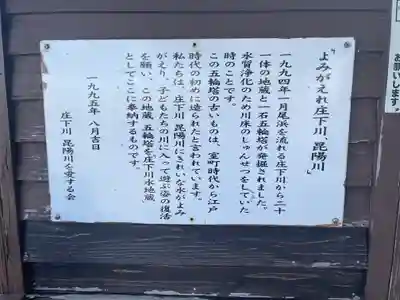 「よみがえれ庄下川、昆陽川」
一九九四年一月尾浜を流れる庄下川から二十
一体の地蔵と一石五輪塔が発掘されました。
水質浄化のため川床のしゅんせつをしていた
時のことです。
この五輪塔の古いものは、室町時代から江戸
時代の初めに造られたと言われています。
私たちは、庄下川、昆陽川にきれいな水がよみ
がえり、子どもたちの川に入って遊ぶ姿の復活
を願い、この地蔵、五輪塔を庄下川水地蔵
としてここに奉納するものです。
一九九五年 八月吉日
庄下川、昆陽川を愛する会
お願いします。